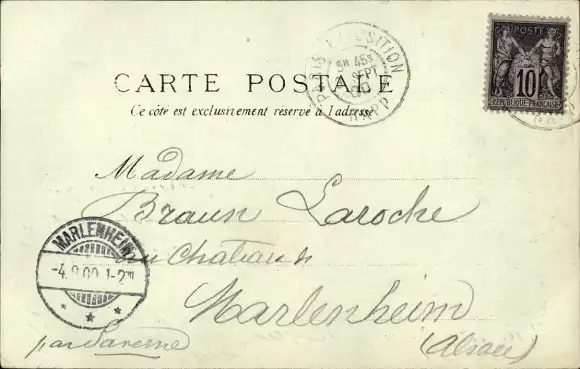 PARIS EXPOSITION
5H 45S
SEPT
RAPP
POSTE
10
RÉPUBLIQUE FRANÇAISE
CARTE POSTALE
Ce côté est exclusivement réservé à l'adresse
Madame
Braun Laroche
au Château
Marlenheim
(Alsace)
par Saverne
MARLENHEIM
-4.9.00.1-2N